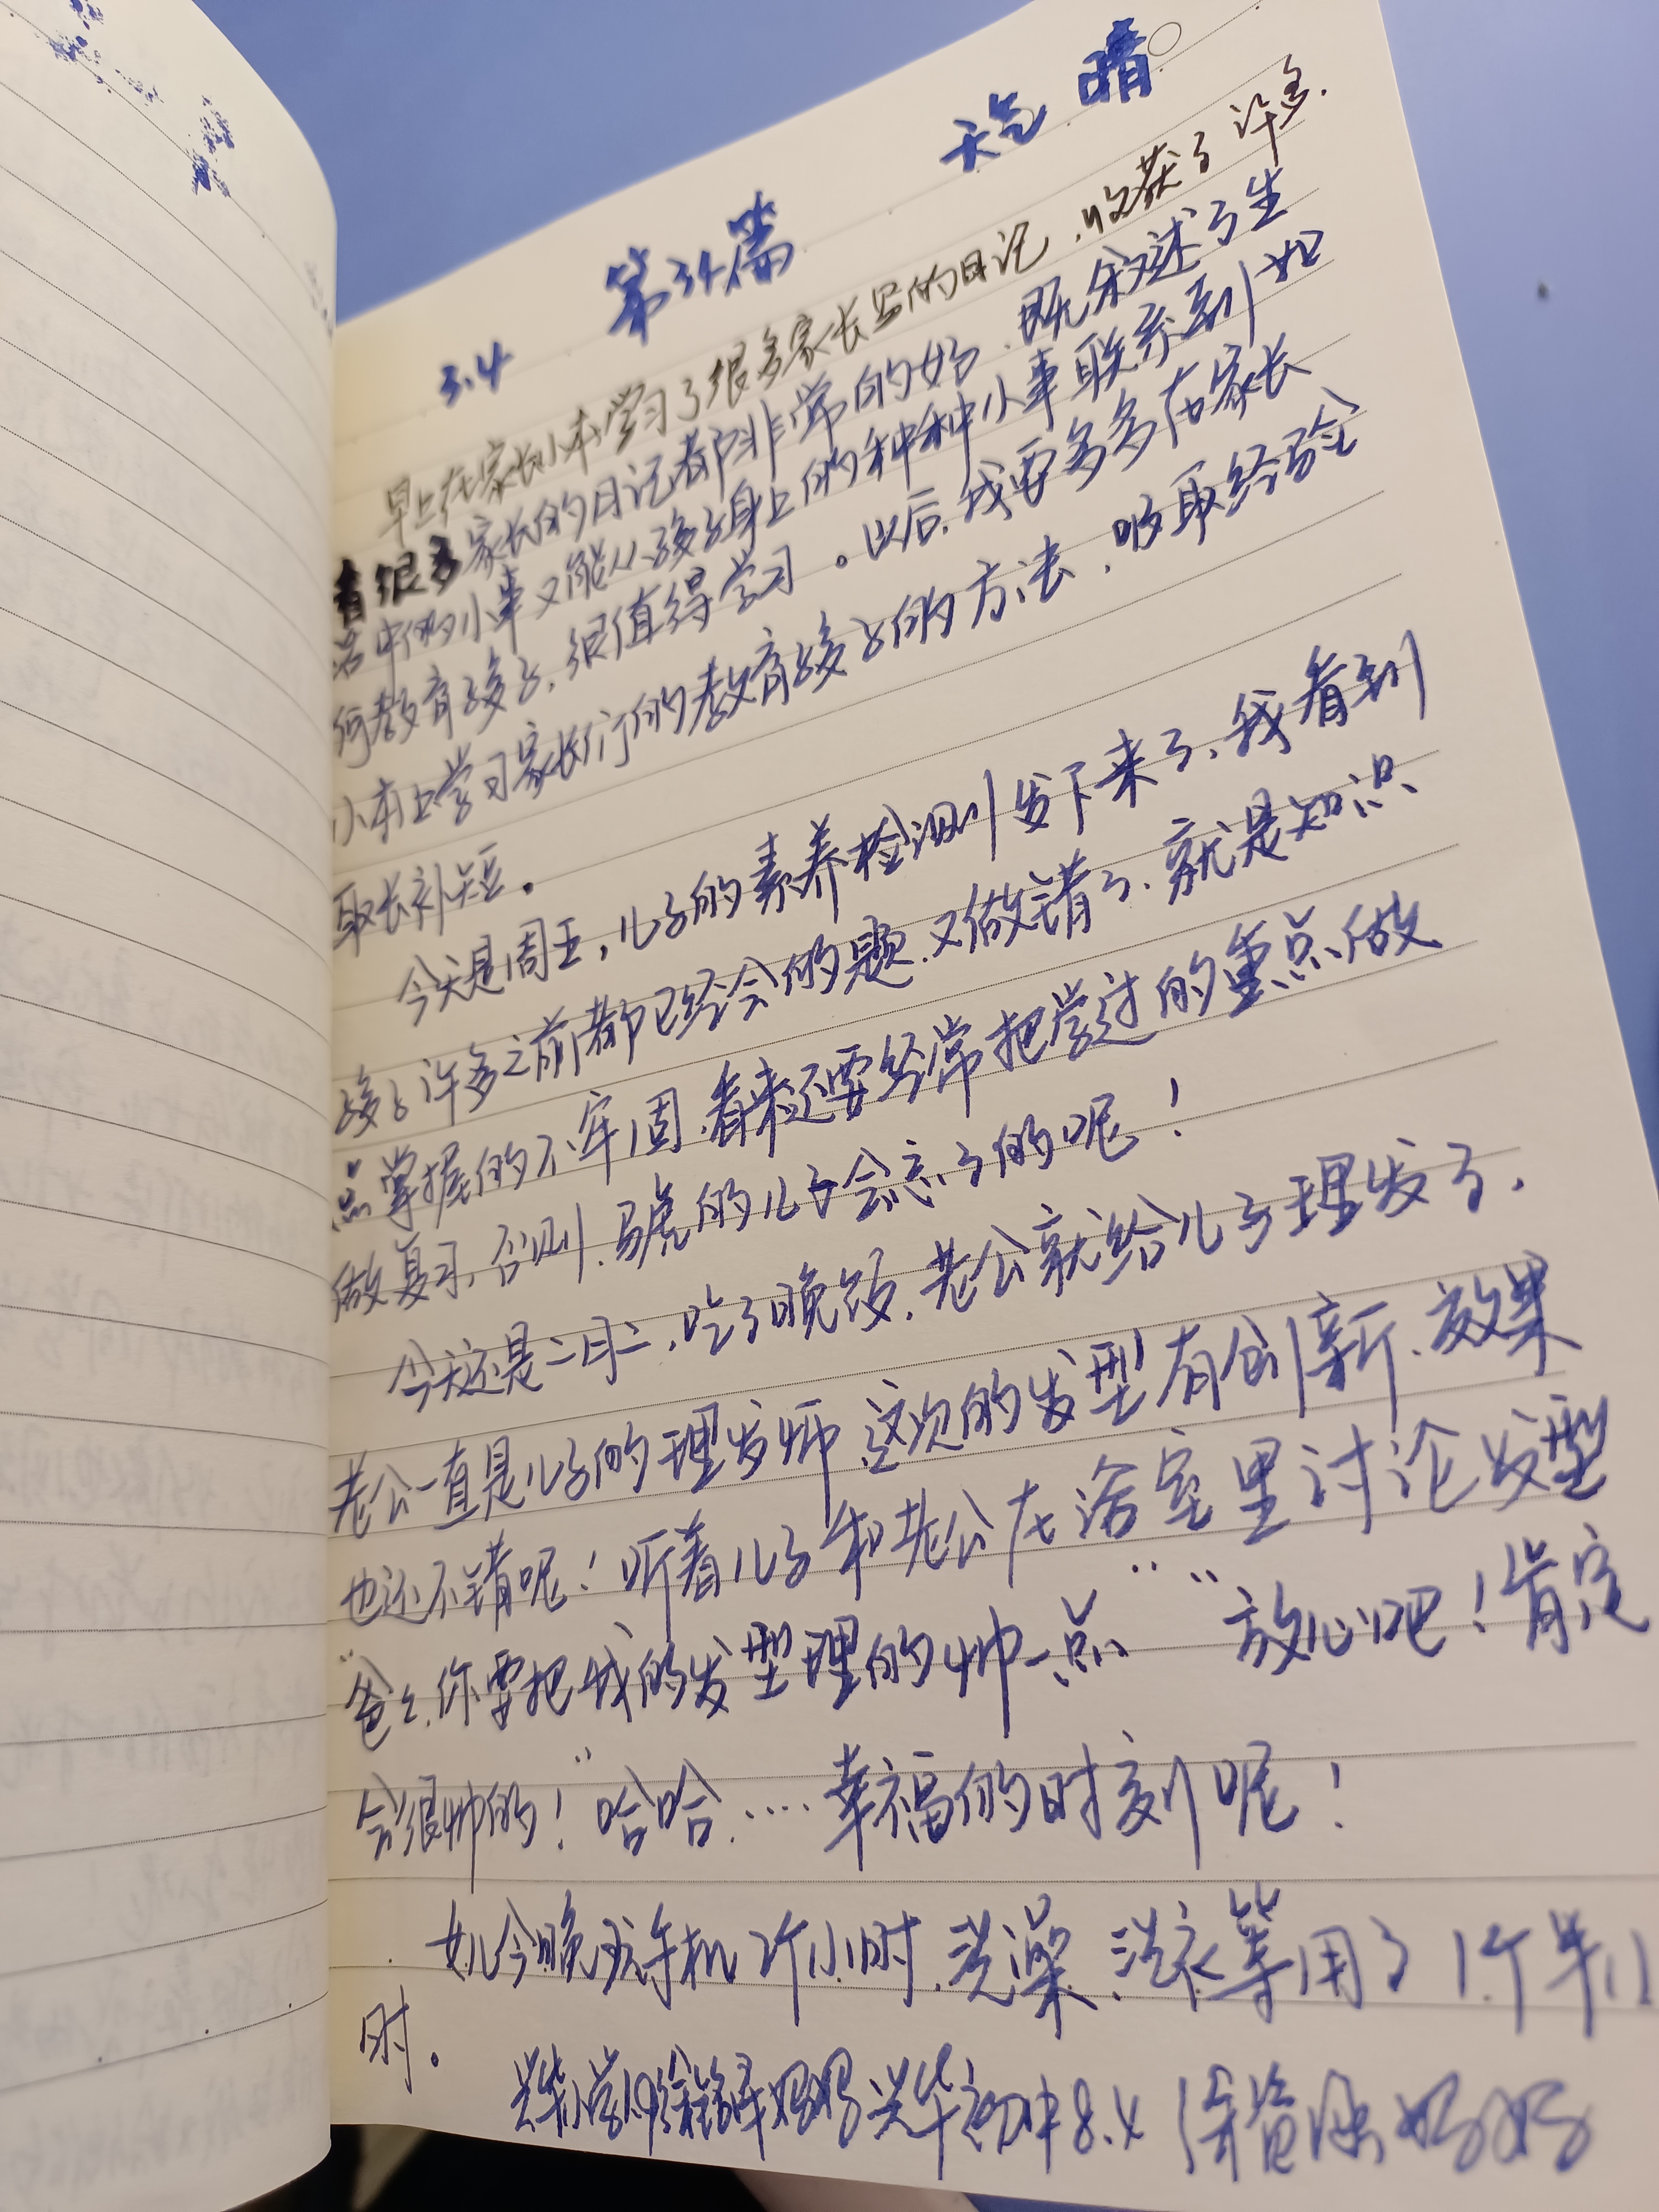 天气 晴
3.4 第34篇
早上在家长小本学习了很多家长写的日记，收获了许多.
有很多家长的日记都非常的好，既叙述了生
活中的小事又能从孩子身上的种种小事联系到如
何教育孩子，很值得学习。以后，我要多多在家长
小本上学习家长们的教育孩子的方法，吸取经验
取长补短。
今天是周五，儿子的素养检测发下来了，我看到
孩子许多之前都已经会的题，又做错了，就是知识
点掌握的不牢固，看来还要经常把学过的重点做
做复习，否则，马虎的儿子会忘了的呢！
今天还是二月二，吃了晚饭，老公就给儿子理发了，
老公一直是儿子的理发师，这次的发型有创新，效果
也还不错呢！听着儿子和老公在浴室里讨论发型
“爸爸，你要把我的发型理的帅一点” “放心吧！肯定
会很帅的！”哈哈……幸福的时刻呢！
女儿今晚玩手机2个小时，洗澡、洗衣等用了1个半小
时。
兴华小学 妈妈 兴华初中8.4 徐 妈妈